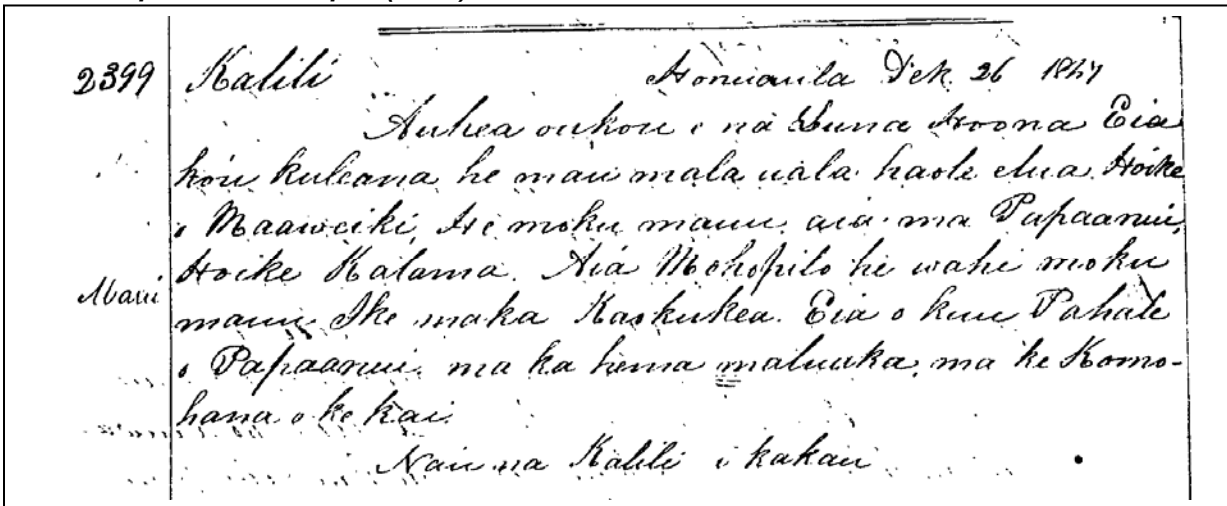 2399 Kalili Honuaula Dek. 26 1847
Auhea oukou e na Luna Hoona Eia
ko'u kuleana he mau mala uala haole elua Hoike
o Maaweiki, He moku mauu aia ma Papaanui,
Hoike Kalama. Aia Mohopilo he wahi moku
Maui mauu Ike maka Kaokukea. Eia o kuu Pahale
o Papaanui, ma ka hema maluaka, ma ke Komo-
hana o ke kai.
Na'u na Kalili i kakau